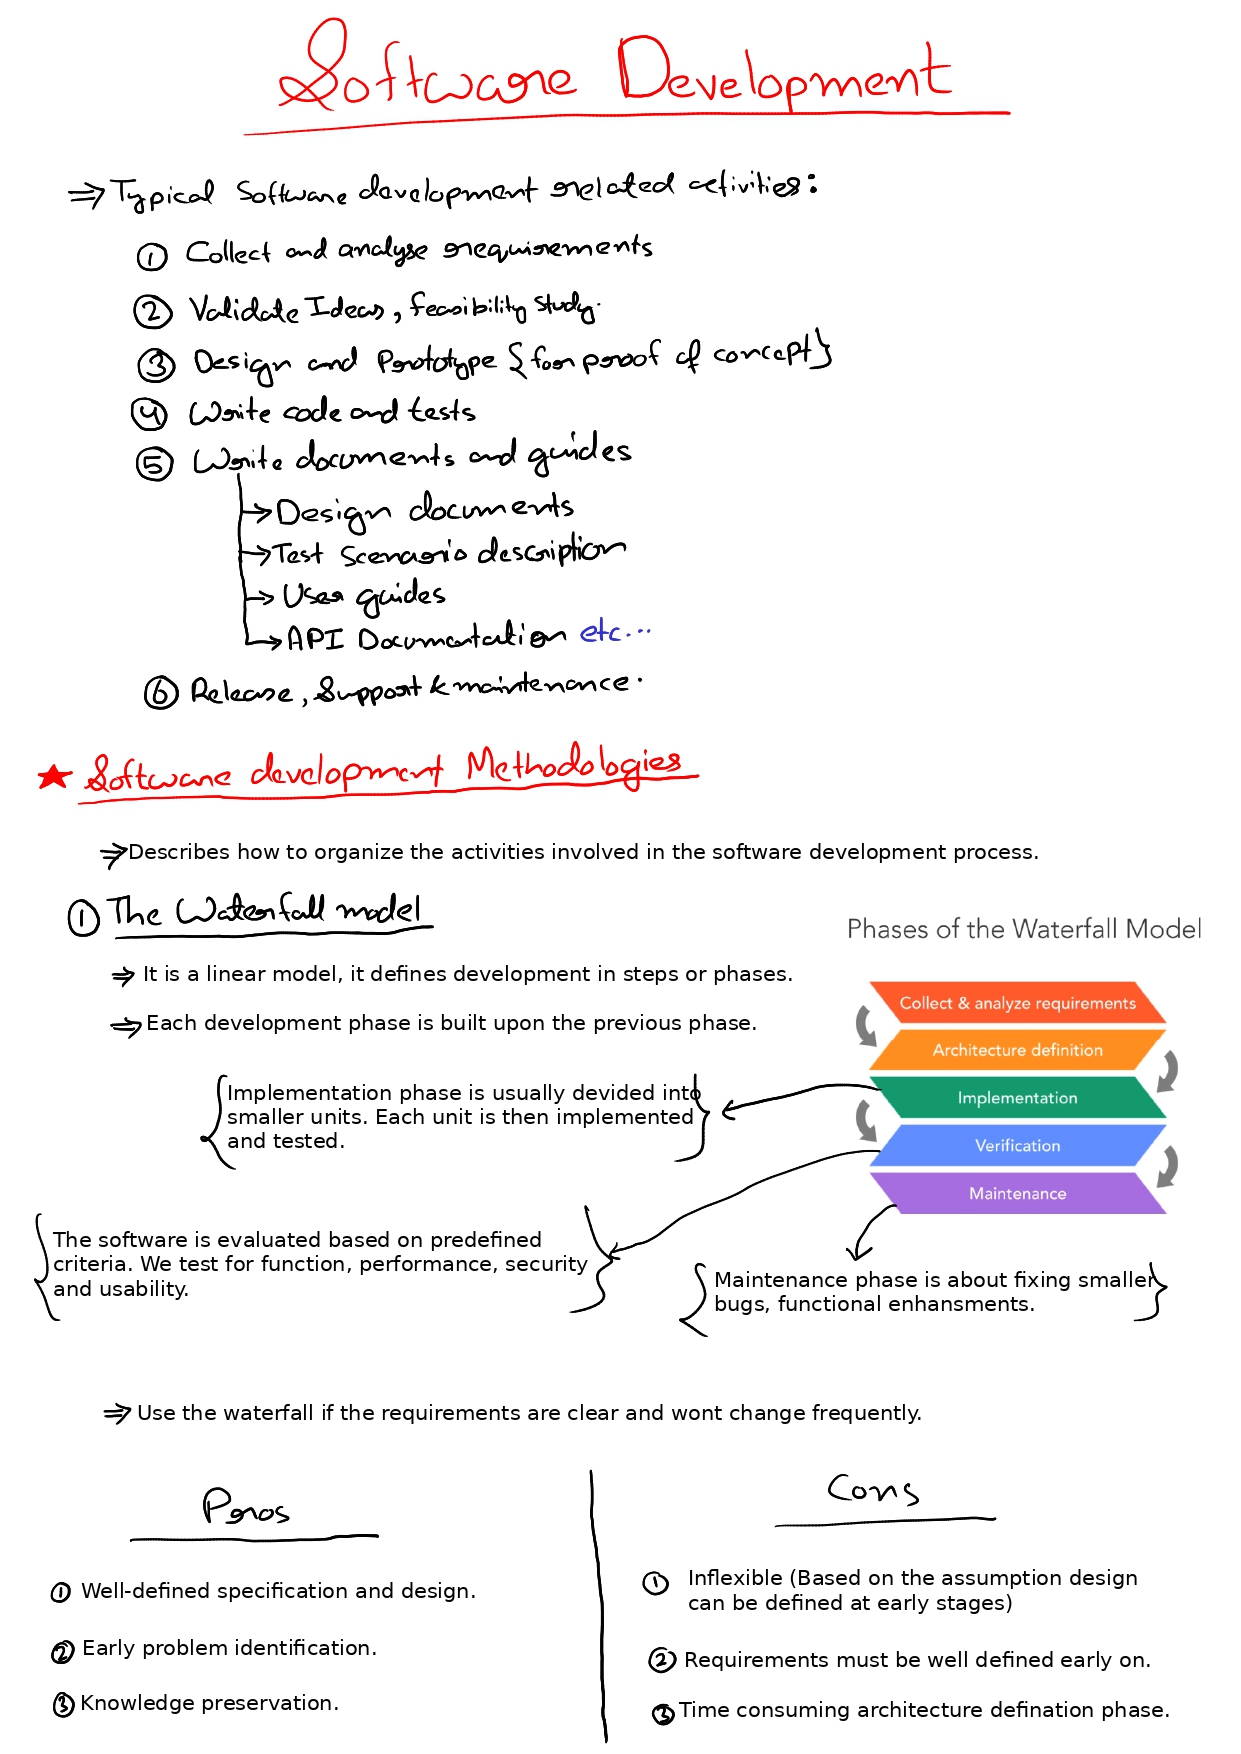 Software Development
⇒ Typical Software development related activities:
① Collect and analyse requirements
② Validate Ideas, feasibility study.
③ Design and Prototype {for proof of concept}
④ Write code and tests
⑤ Write documents and guides
→ Design documents
→ Test Scenario description
→ User guides
→ API Documentation etc...
⑥ Release, Support & maintenance.
★ Software development Methodologies
⇒ Describes how to organize the activities involved in the software development process.
① The Waterfall model
Phases of the Waterfall Model
⇒ It is a linear model, it defines development in steps or phases.
⇒ Each development phase is built upon the previous phase.
Collect & analyze requirements
Architecture definition
Implementation
Verification
Maintenance
{Implementation phase is usually devided into
smaller units. Each unit is then implemented
and tested.}
{The software is evaluated based on predefined
criteria. We test for function, performance, security
and usability.}
{Maintenance phase is about fixing smaller
bugs, functional enhansments.}
⇒ Use the waterfall if the requirements are clear and wont change frequently.
Pros
① Well-defined specification and design.
② Early problem identification.
③ Knowledge preservation.
Cons
① Inflexible (Based on the assumption design
can be defined at early stages)
② Requirements must be well defined early on.
③ Time consuming architecture defination phase.